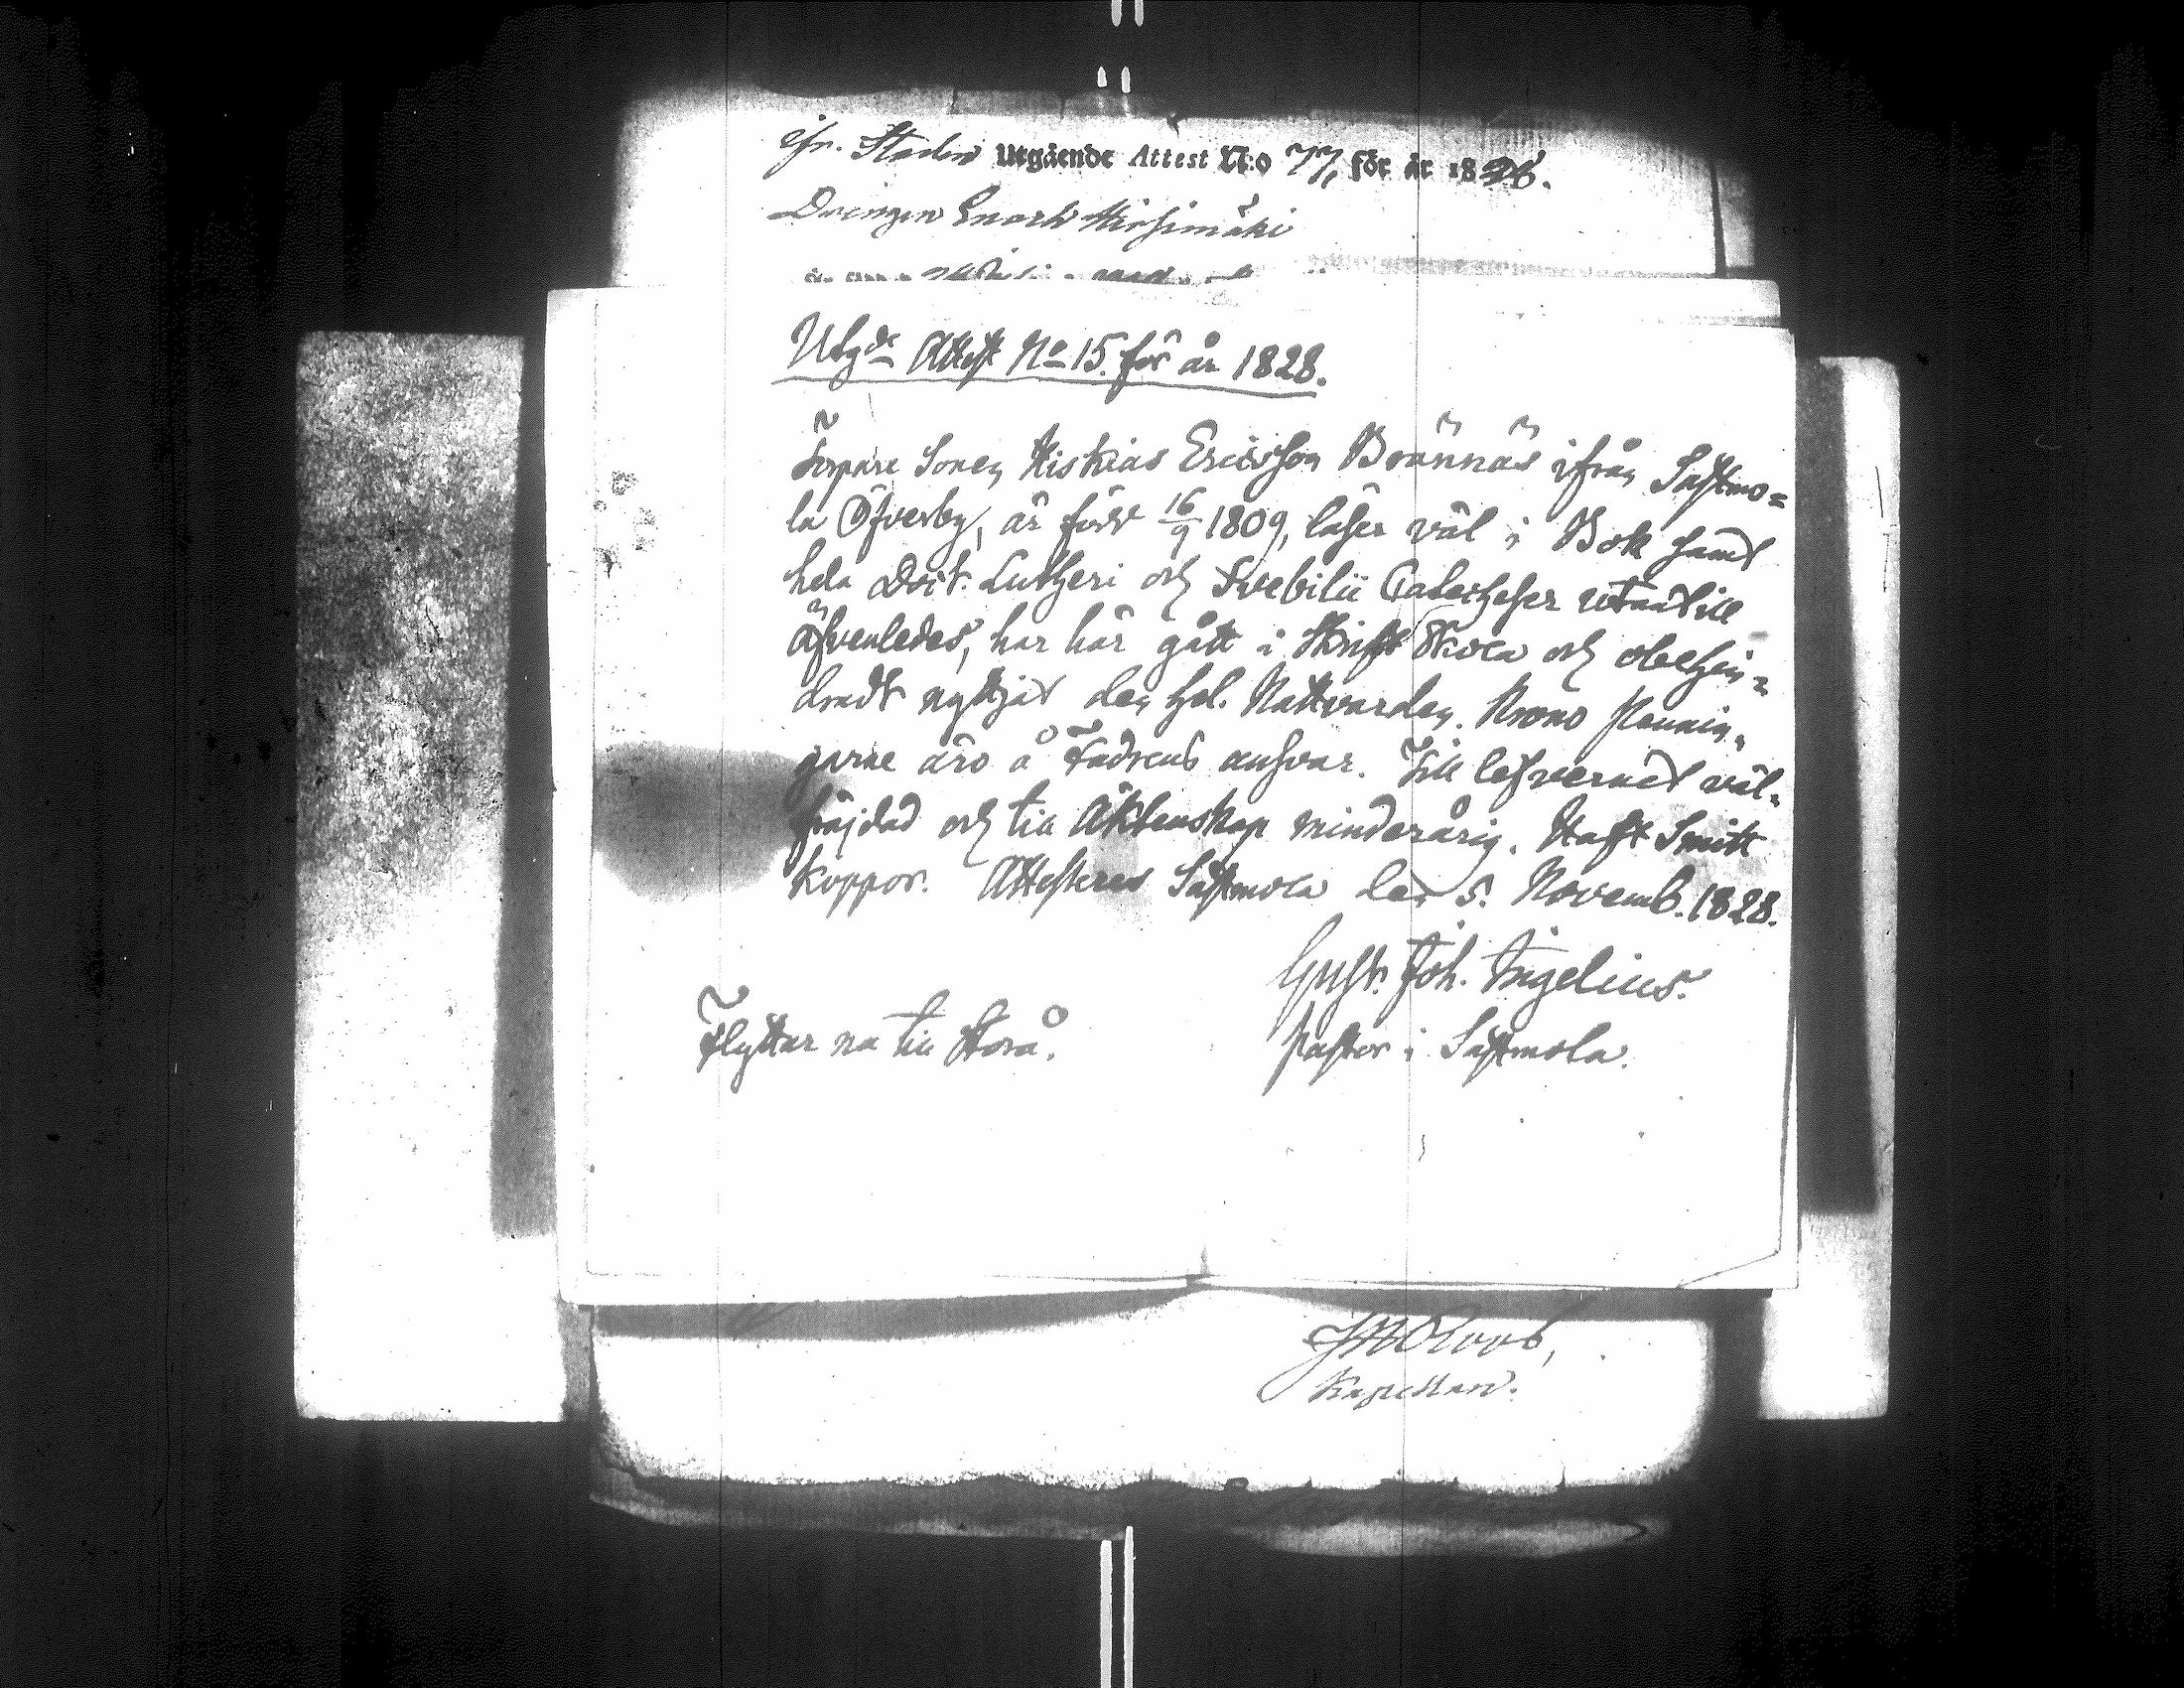 ifr. Staden Utgående Attest N:o 77, för år 1836.
Drängen Enoch Hirsimäki
Utg:de Attest No 15. för år 1828.
Torpare Sonen Hiskias Ericsson Brännäs ifrån Sastmo=
la Öfverby, är född 16/9 1809, läser väl i Bok samt
hela Doct. Lutheri och Svebilii Catecheser utantill
äfvenledes, har här gått i Skrift Skola och obehin=
dradt nyttjat den hel. Nattvarden. Krono Pennin=
garne äro å Fadrens ansvar. Till lefvernet väl=
fräjdad och till Äktenskap minderårig. Haft Smitt
koppor. Attesteras Sastmola den 5. Novemb. 1828.
Gust. Joh. Ingelius.
Flyttar nu till Storå.
Pastor i Sastmola.
Roos,
Kapellan.